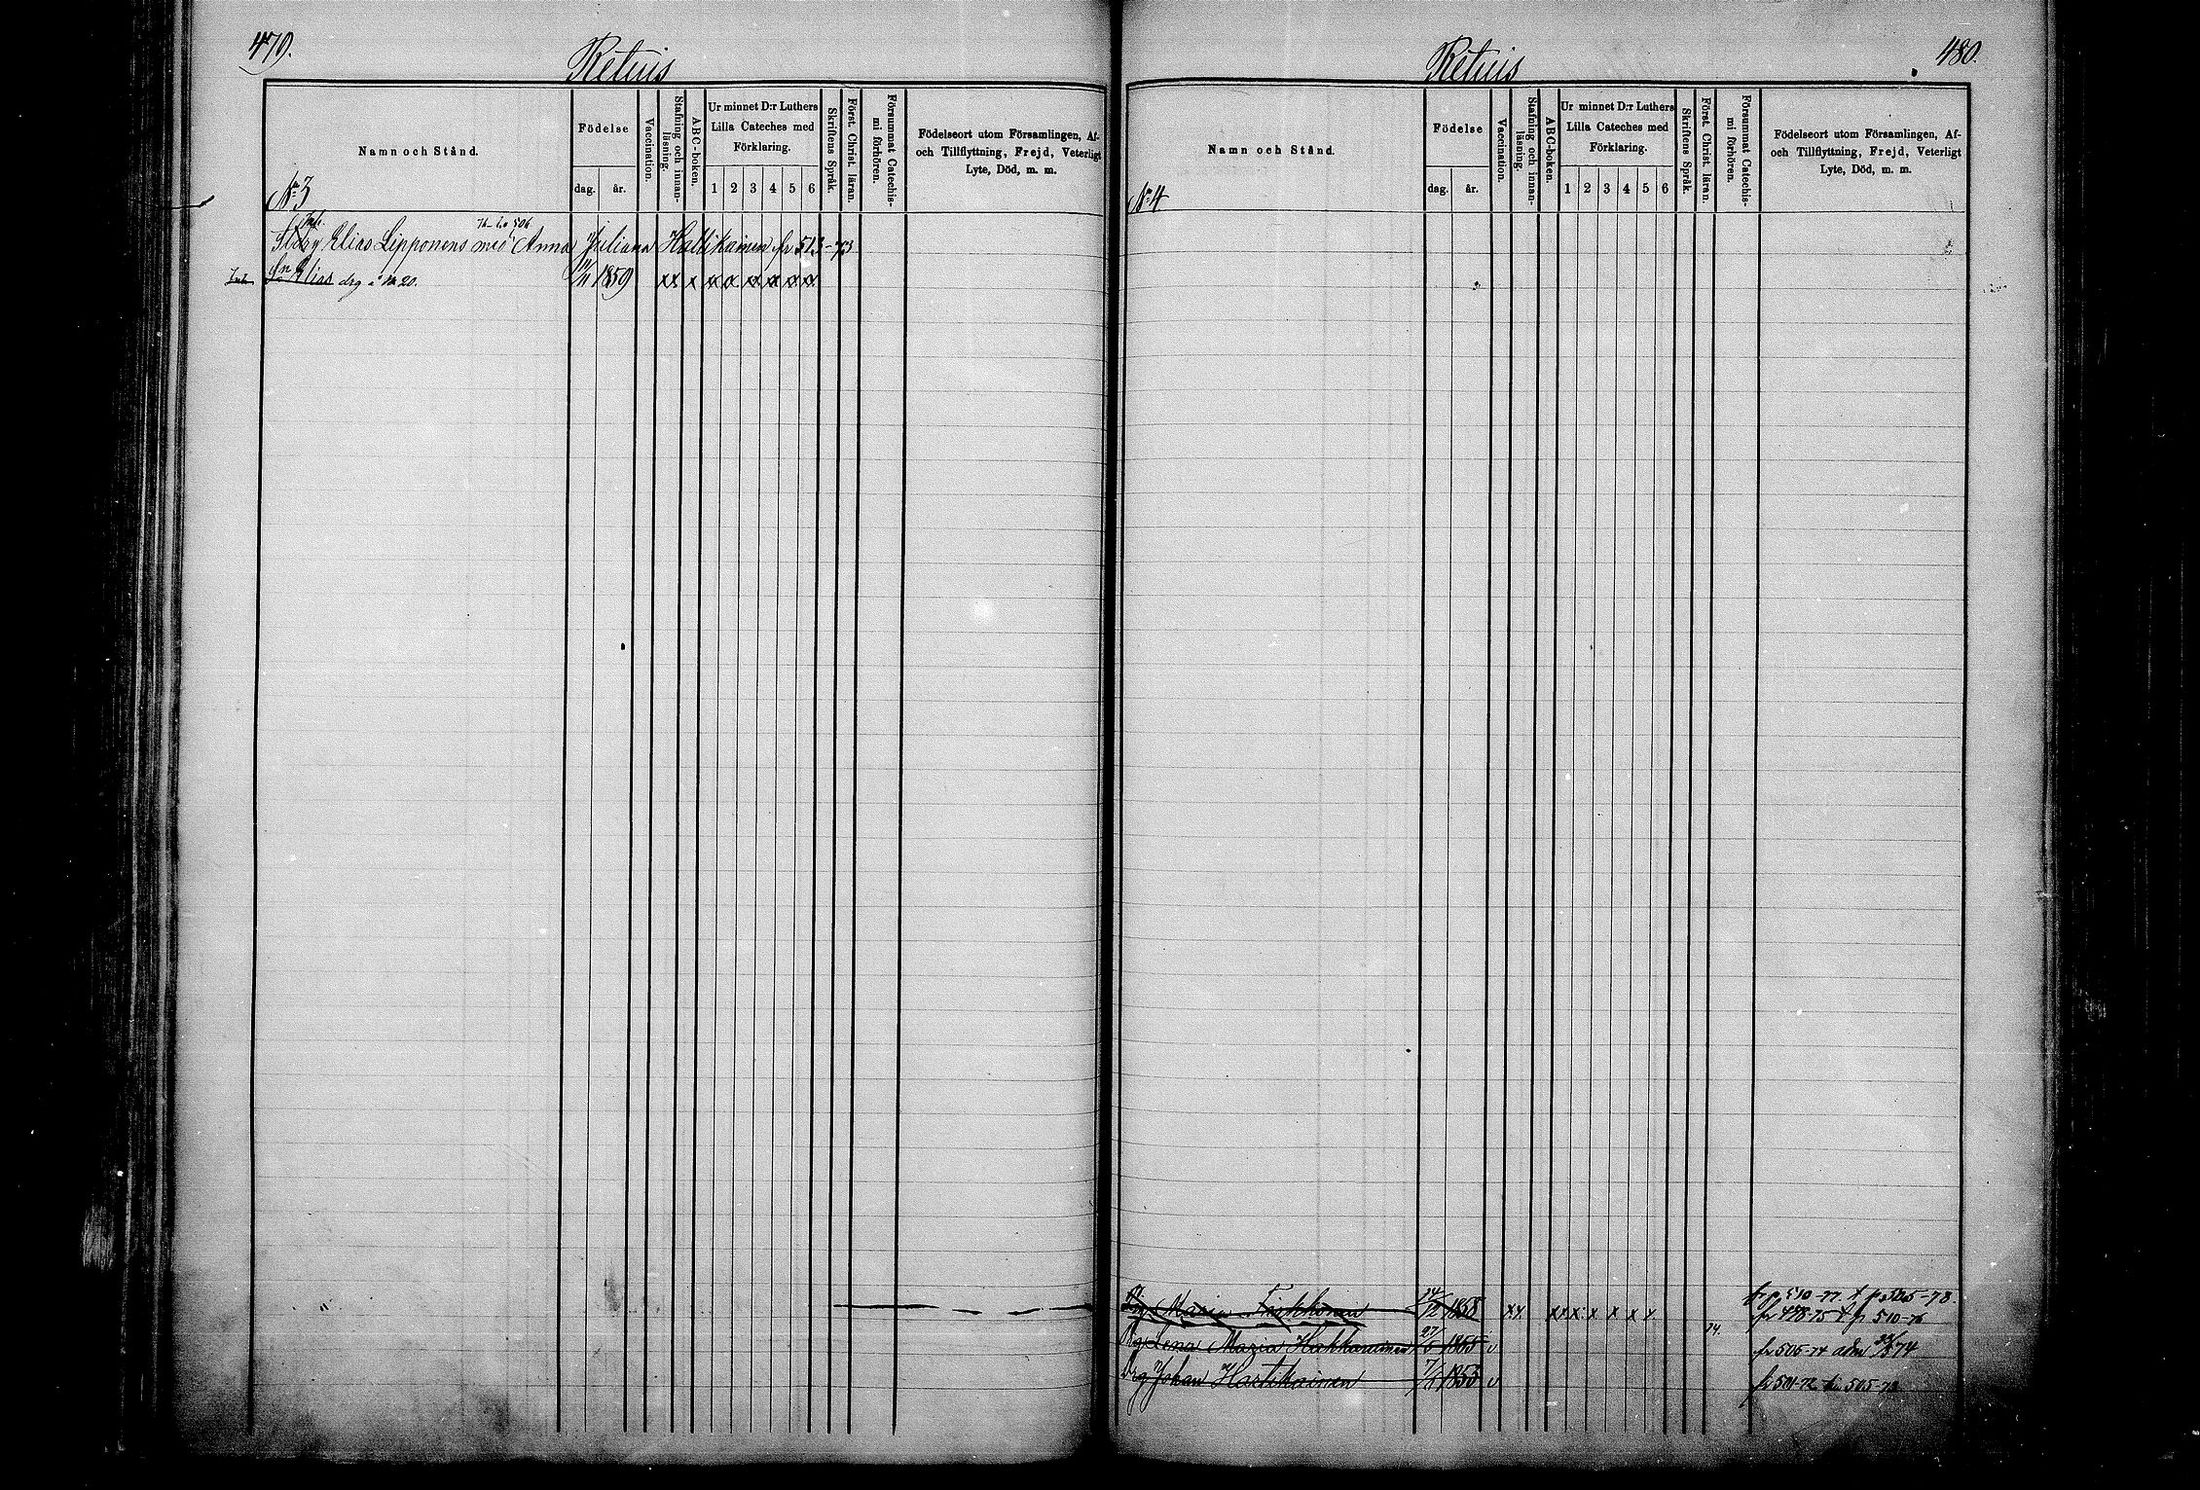 479.
Retuis
Namn och Stånd.
Födelse
dag. år.
Vaccination.
Stafning och innan-
läsning.
ABC-boken.
Ur minnet D:r Luthers
Lilla Cateches med
Förklaring.
1 2 3 4 5 6
Skriftens Språk.
Först. Christ. läran.
Försummat Catechis-
mi förhören.
Födelseort utom Församlingen, Af-
och Tillflyttning, Frejd, Veterligt
Lyte, Död, m. m.
No 3
Elias Lipponens med Anna Juliana Hallikainen fr 513-73
Sn Elias drg å No 20. 11/11 1859 xx x x x x x x x
480.
Retuis
Namn och Stånd.
Födelse
dag. år.
Vaccination.
Stafning och innan-
läsning.
ABC-boken.
Ur minnet D:r Luthers
Lilla Cateches med
Förklaring.
1 2 3 4 5 6
Skriftens Språk.
Först. Christ. läran.
Försummat Catechis-
mi förhören.
Födelseort utom Församlingen, Af-
och Tillflyttning, Frejd, Veterligt
Lyte, Död, m. m.
No 4
Maria 1858 xx xxx x x x x fr 478-75 t p 510-76
Lena Maria Hakkarainen 27/5 1855 v fr 505-74
Drg Johan Hartikainen 1853 v fr 501-72 t 505-73